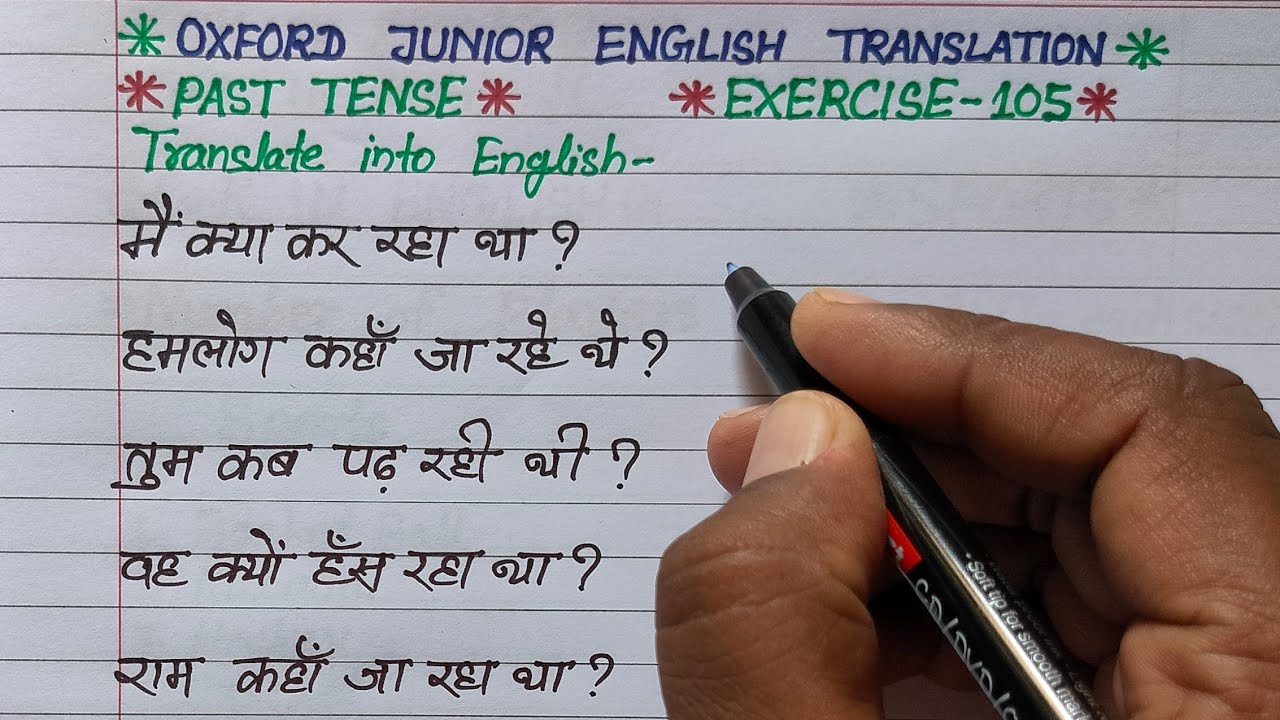 OXFORD JUNIOR ENGLISH TRANSLATION
PAST TENSE EXERCISE-105
Translate into English-
मैं क्या कर रहा था ?
हमलोग कहाँ जा रहे थे ?
तुम कब पढ़ रही थी ?
वह क्यों हँस रहा था ?
राम कहाँ जा रहा था ?
Soft tip for smooth